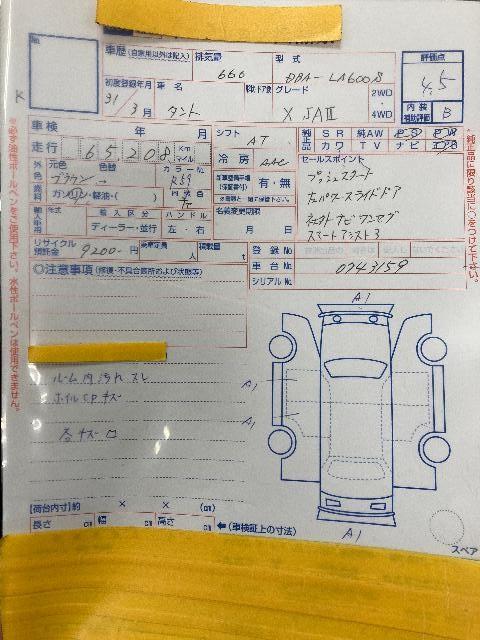 車歴(自家用以外は記入) 排気量 型式 評価点
660 DBA-LA600S 4.5
初度登録年月 車名 グレード 2WD 4WD
31/3月 タント X SAⅢ
内装補助評価 B
車検 年 月 シフト AT SR 純AW
走行 65,208 Km マイル 冷房 AAC カワ TV ナビ
外色 元色 色替 カラーNo セールスポイント
ブラウン→ R59 有・無 プッシュスタート
ガソリン・軽油・( ) 内装色 左パワースライドドア
年式 輸入区分 ハンドル 名義変更期限
ディーラー・並行 左・右 月 日 スマートアシスト3
リサイクル預託金 9200- 乗車定員 人 積載量 t 登録No
車台No 0743159
シリアルNo
◎注意事項(修復・不具合箇所および状態等)
A1
ルーム内汚れ スレ A1
A1
【荷台内寸】約 × × (cm)
長さ cm 幅 cm 高さ cm ←(車検証上の寸法)
A1
スペア
※必ず油性ボールペンをご使用下さい。水性ボールペンは使用できません。
*純正品に限り該当に○をつけて下さい。